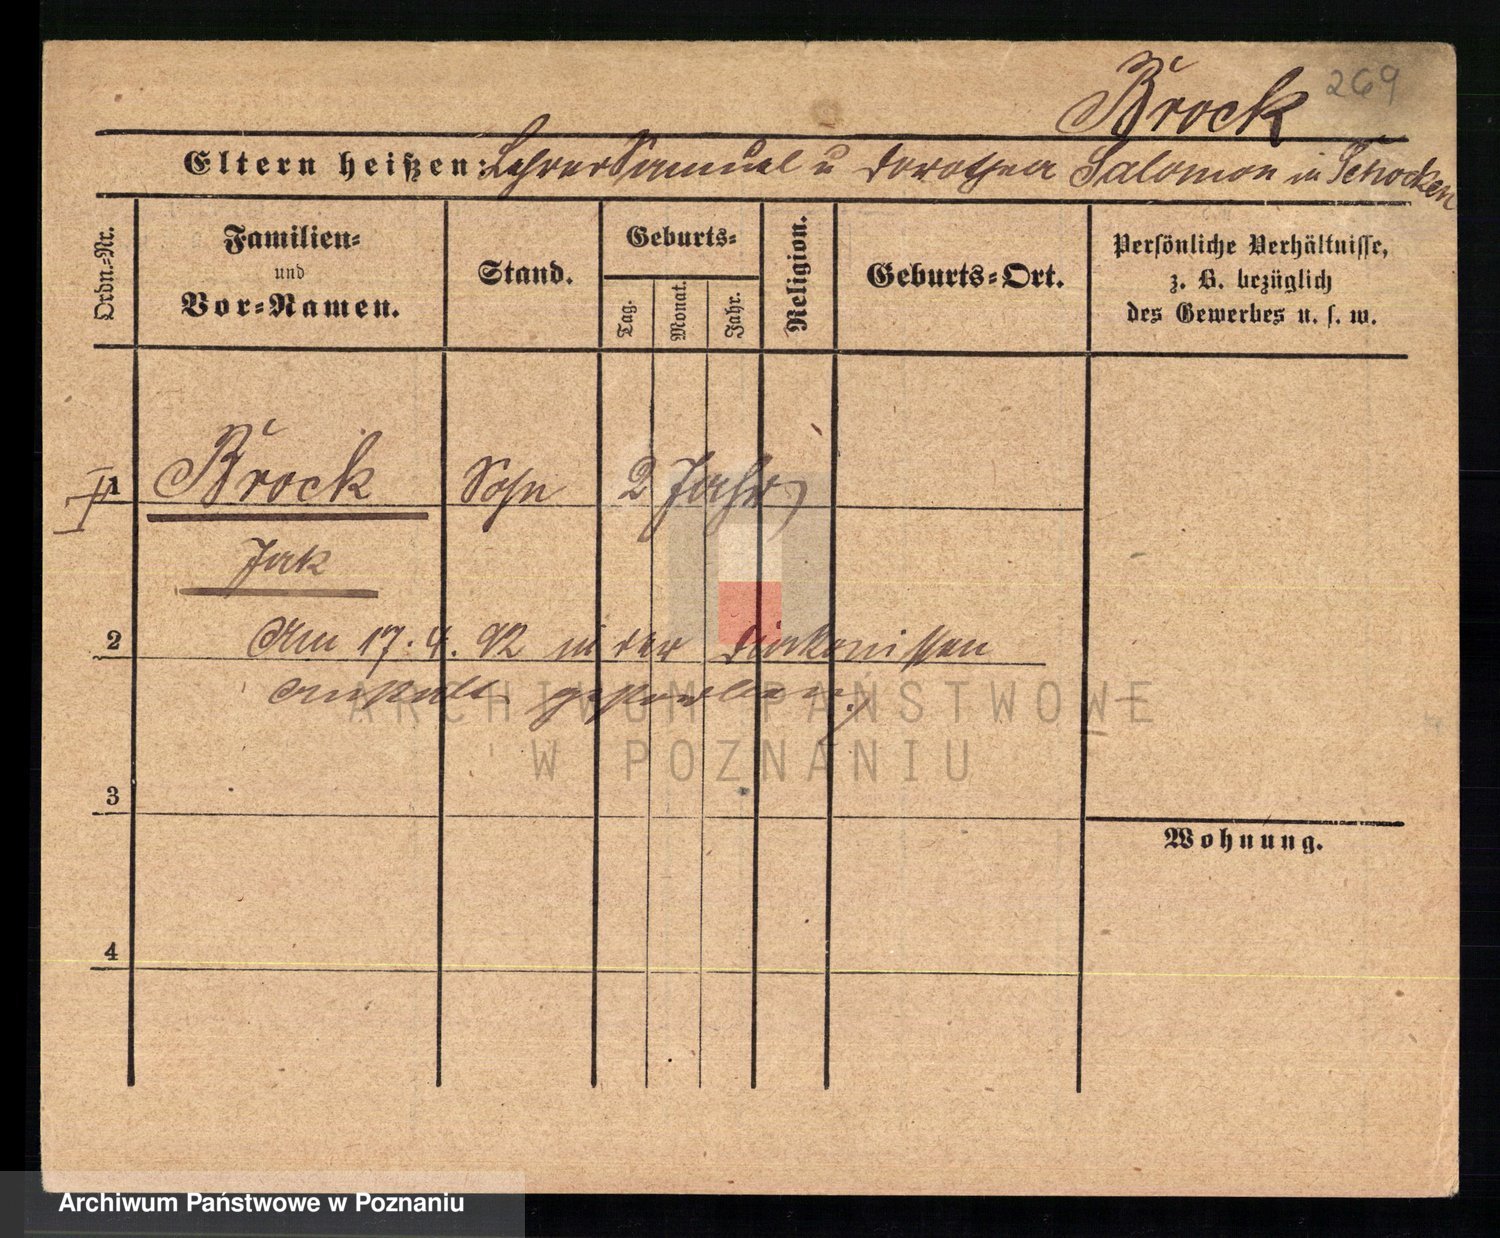 Brock 269
Eltern heißen: Lehrer Samuel u Dorothea Salomon in Schocken
Ordn.-Nr.
Familien-
und
Vor-Namen.
Stand.
Geburts-
Tag.
Monat.
Jahr.
Religion.
Geburts-Ort.
Persönliche Verhältnisse,
z. B. bezüglich
des Gewerbes u. s. w.
1 Brock Sohn 2 Jahr
Jak
2 Am 17. 4. 92 in der Diakonissen
anstalt gestorben.
3
Wohnung.
4
ARCHIWUM PAŃSTWOWE
W POZNANIU
Archiwum Państwowe w Poznaniu